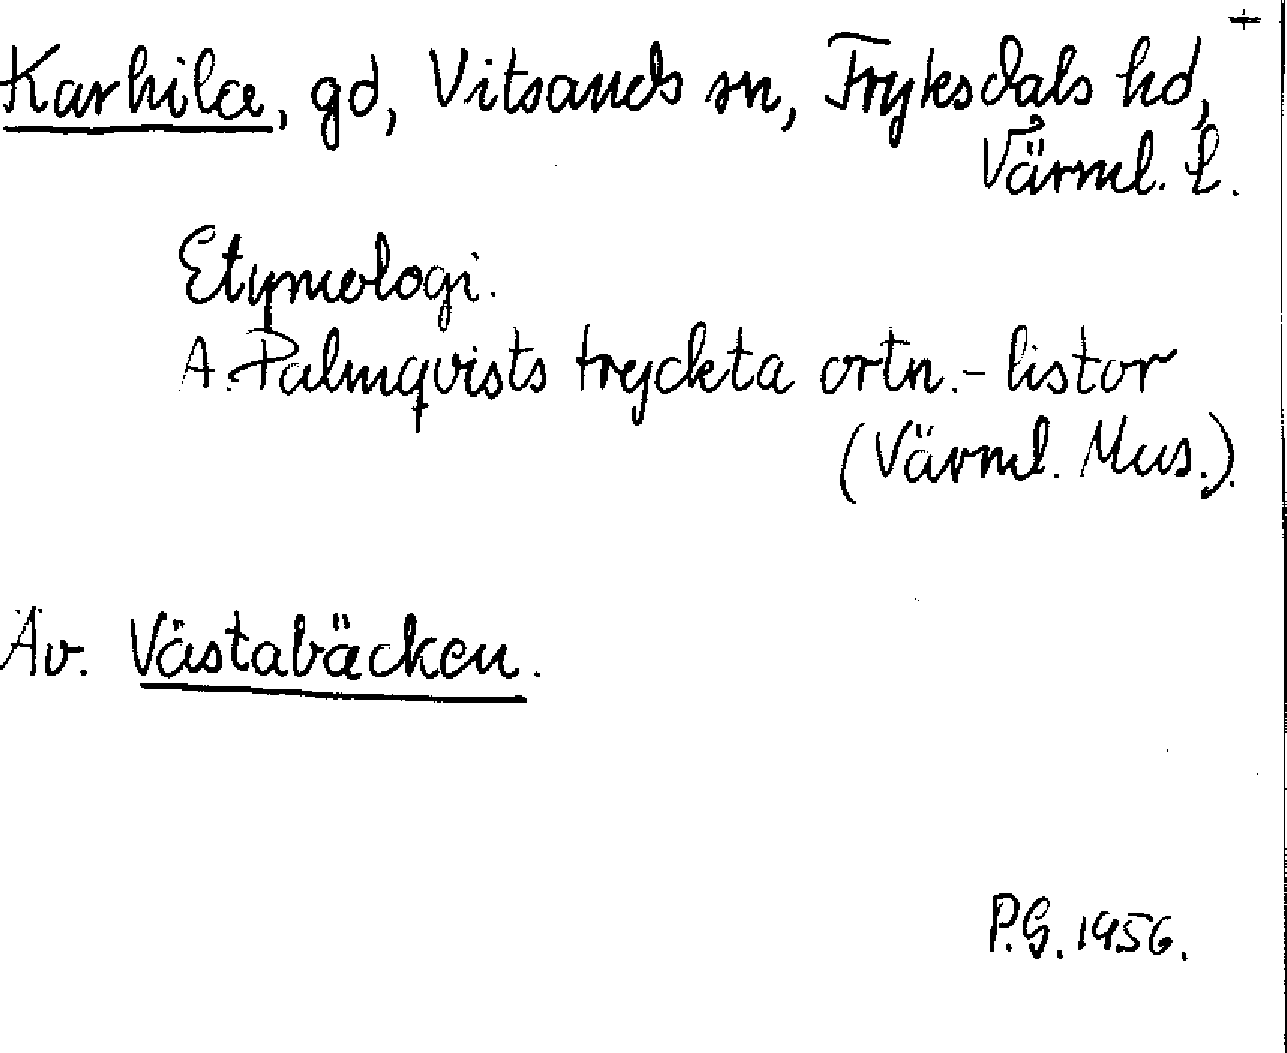 +
Karhila, gd, Vitsands sn, Fryksdals hd,
Värml. l.
Etymologi.
A. Palmqvists tryckta ortn.- listor
(Värml. Mus.).
Äv. Västabäcken.
P.G. 1956.